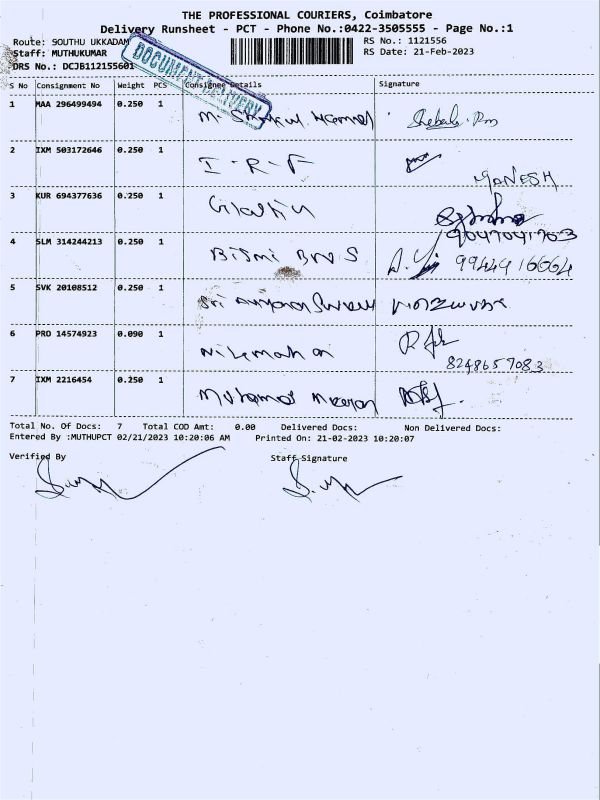 THE PROFESSIONAL COURIERS, Coimbatore
Delivery Runsheet - PCT - Phone No.:0422-3505555 - Page No.:1
Route: SOUTHU UKKADAM
RS No.: 1121556
Staff: MUTHUKUMAR
RS Date: 21-Feb-2023
DRS No.: DCJB112155601
DOCUMENT DELIVERY
S No Consignment No Weight PCS Consignee Details Signature
1 MAA 296499494 0.250 1
2 IXM 503172646 0.250 1 I - R - F GANESH
3 KUR 694377636 0.250 1
9047041703
4 SLM 314244213 0.250 1 Bismi Bros 9944916664
5 SVK 20108512 0.250 1 Sri
6 PRO 14574923 0.090 1 Nilamohan
8248657083
7 IXM 2216454 0.250 1 Mohamed Meeran
Total No. Of Docs: 7 Total COD Amt: 0.00 Delivered Docs: Non Delivered Docs:
Entered By :MUTHUPCT 02/21/2023 10:20:06 AM Printed On: 21-02-2023 10:20:07
Verified By Staff Signature